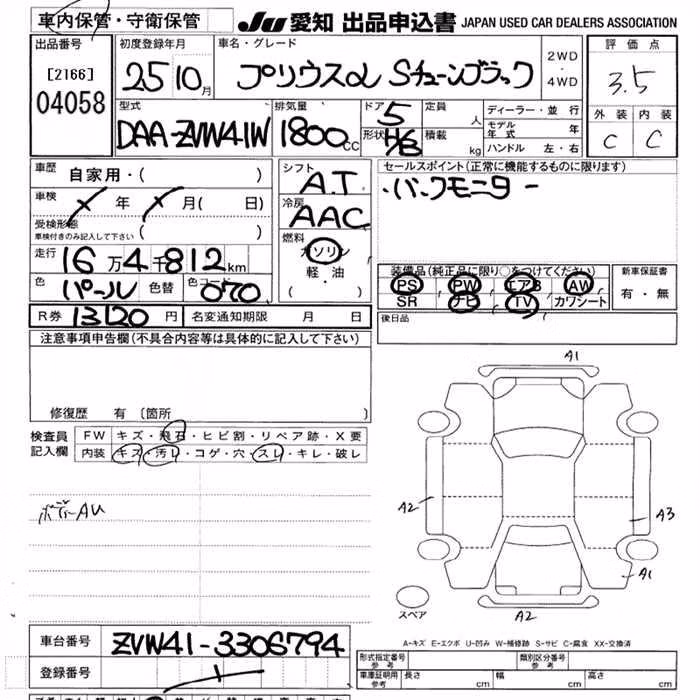 車内保管・守衛保管
JU 愛知 出品申込書 JAPAN USED CAR DEALERS ASSOCIATION
出品番号
[2166]
04058
初度登録年月
25 10月
車名・グレード
プリウスα Sチューンブラック
2WD
・
4WD
評価点
3.5
外装 内装
C C
型式
DAA-ZVW41W
排気量
1800cc
ドア 5
形状 H/B
定員 人
積載 kg
ディーラー・並行
モデル年式 年
ハンドル 左・右
車歴 自家用・( )
車検 年 月( 日)
受検形態
車検付きのみ記入して下さい ( )
走行 16万4千812km
色 パール 色替 色コード 070
R券 13120円 名変通知期限 月 日
シフト
A.T
冷房
AAC
燃料
ガソリン
軽・油
( ・ )
セールスポイント(正常に機能するものに限ります)
・バックモニター
装備品(純正品に限り○をつけてください)
PS PW エアB AW
SR ナビ TV カワシート
新車保証書
有・無
後日品
注意事項申告欄(不具合内容等は具体的に記入して下さい)
修復歴 有〔箇所 〕
検査員記入欄
FW キズ・飛石・ヒビ割・リペア跡・X要
内装 キズ・汚レ・コゲ・穴・スレ・キレ・破レ
ボデーAU
A1
A2
A3
A1
A2
スペア
A-キズ E-エクボ U-凹み W-補修跡 S-サビ C-腐食 XX-交換済
車台番号 ZVW41-3306794
登録番号
形式指定番号 参考
類別区分番号 参考
車庫証明用 参考 長さ cm 幅 cm 高さ cm